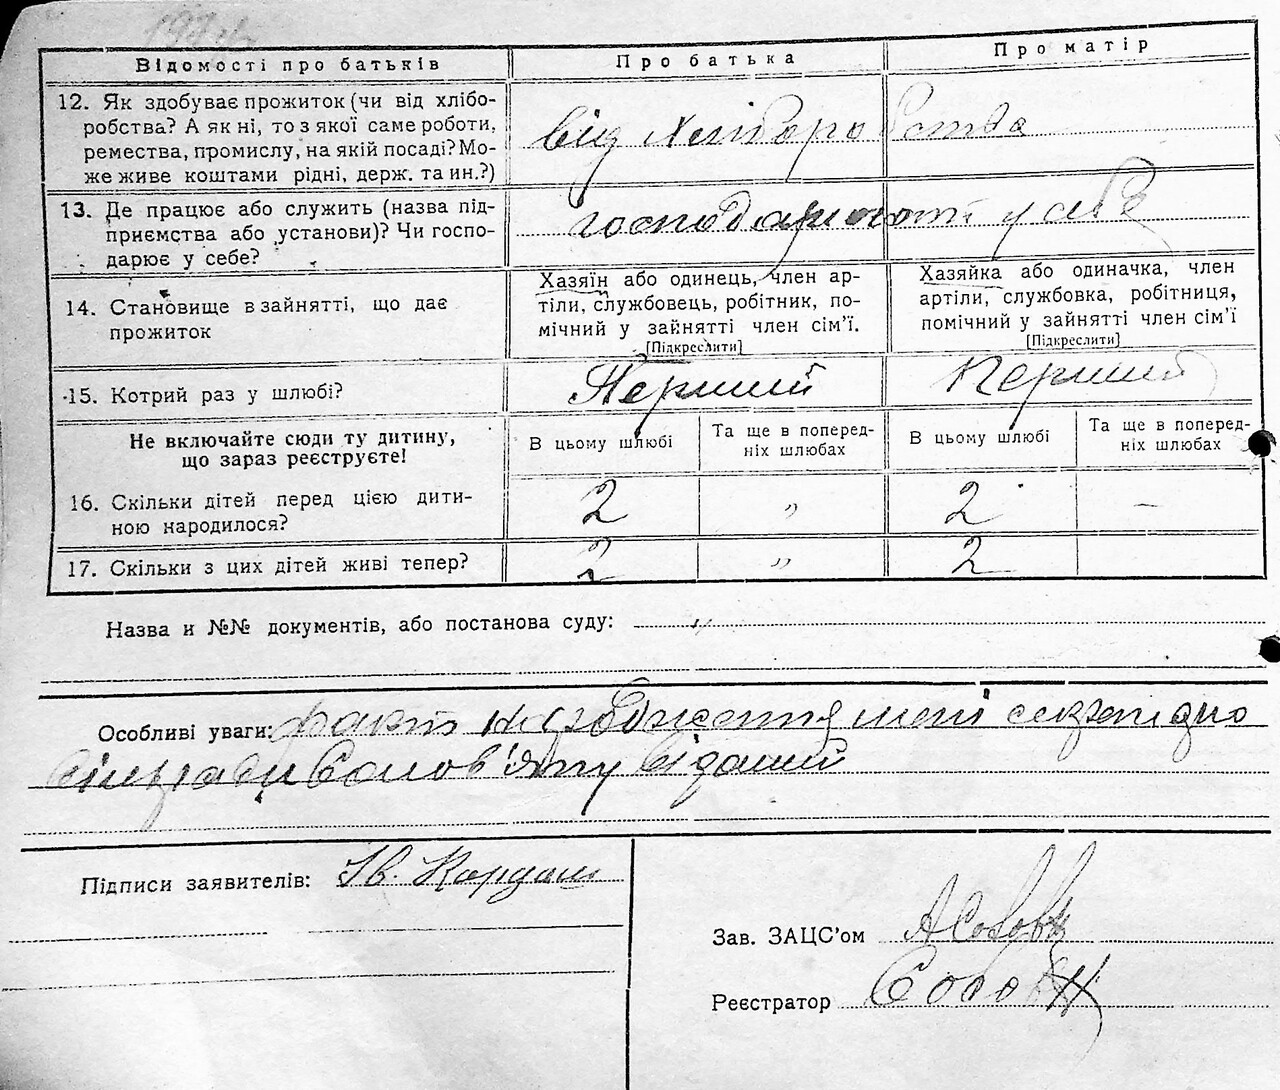 Відомості про батьків
Про батька
Про матір
12. Як здобуває прожиток (чи від хлібо-
робства? А як ні, то з якої саме роботи,
ремества, промислу, на якій посаді? Мо-
же живе коштами рідні, держ. та ин.?)
від хліборобства
13. Де працює або служить (назва під-
приємства або установи)? Чи госпо-
дарює у себе?
господарюють у себе
14. Становище в зайнятті, що дає
прожиток
Хазяїн або одинець, член ар-
тіли, службовець, робітник, по-
мічний у зайнятті член сім’ї.
[Підкреслити]
Хазяйка або одиначка, член
артіли, службовка, робітниця,
помічний у зайнятті член сім’ї
[Підкреслити]
15. Котрий раз у шлюбі?
Перший
Перший
Не включайте сюди ту дитину,
що зараз реєструєте!
В цьому шлюбі
Та ще в поперед-
ніх шлюбах
В цьому шлюбі
Та ще в поперед-
ніх шлюбах
16. Скільки дітей перед цією дити-
ною народилося?
2 „ 2 —
17. Скільки з цих дітей живі тепер?
2 „ 2
Назва и №№ документів, або постанова суду: „
Особливі уваги: факт народження
сільради виданий
Підписи заявителів: Ів. Кордаш
Зав. ЗАЦС’ом
Реєстратор